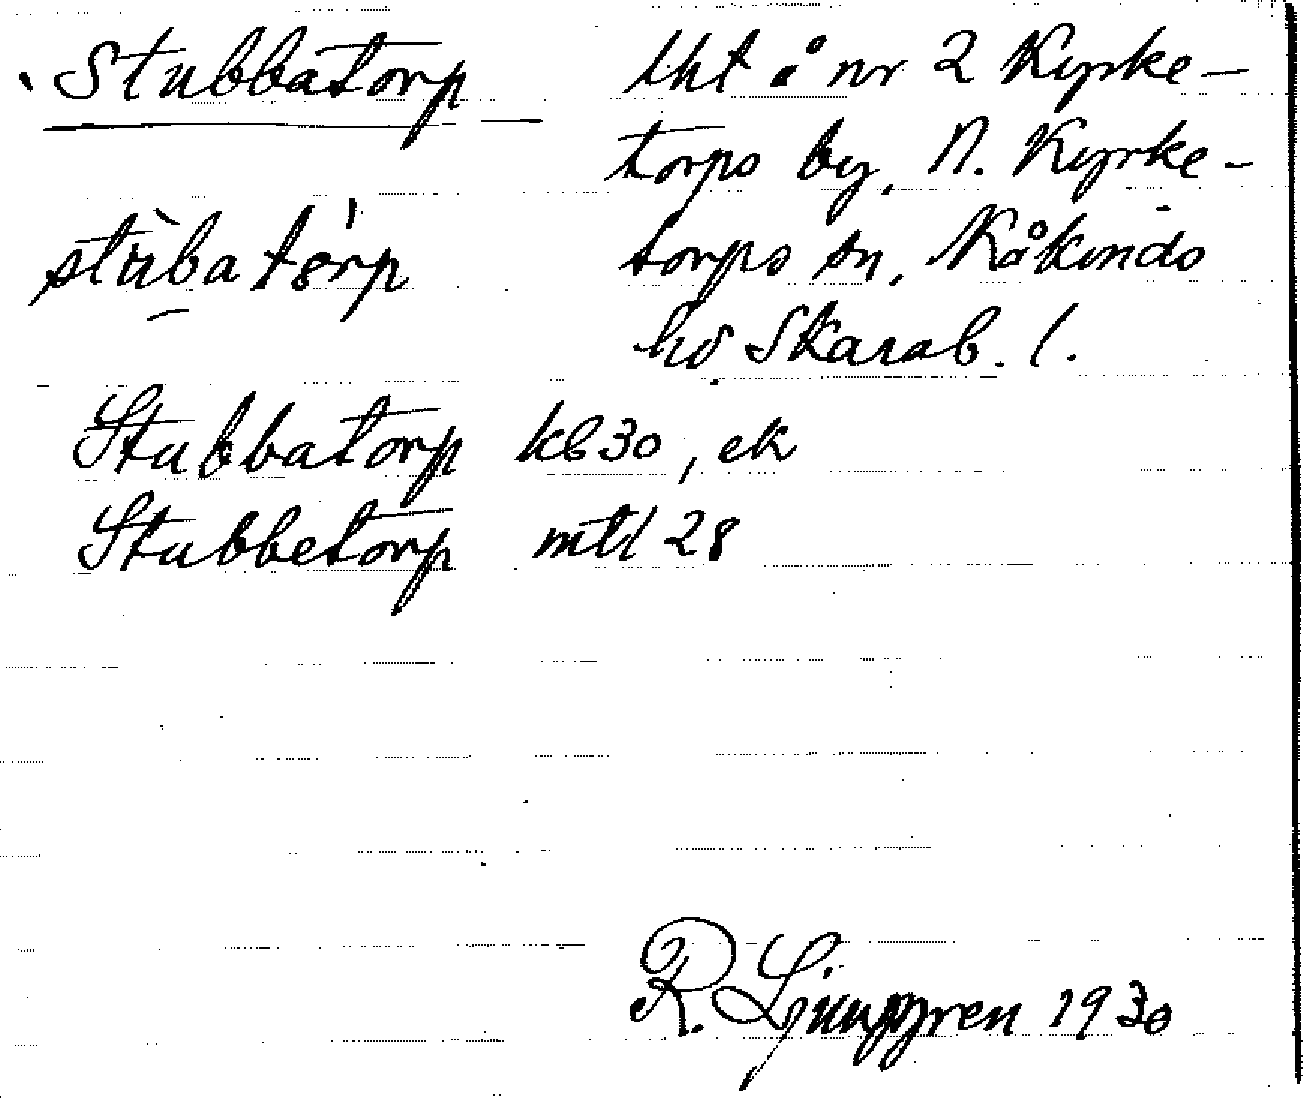 Stubbatorp
lht å nr 2 Kyrke-
torps by, N. Kyrke-
torps sn, Kåkinds
hd Skarab. l.
stùbatórp
Stubbatorp kb 30, ek
Stubbetorp mtl 28
R. Ljunggren 1930